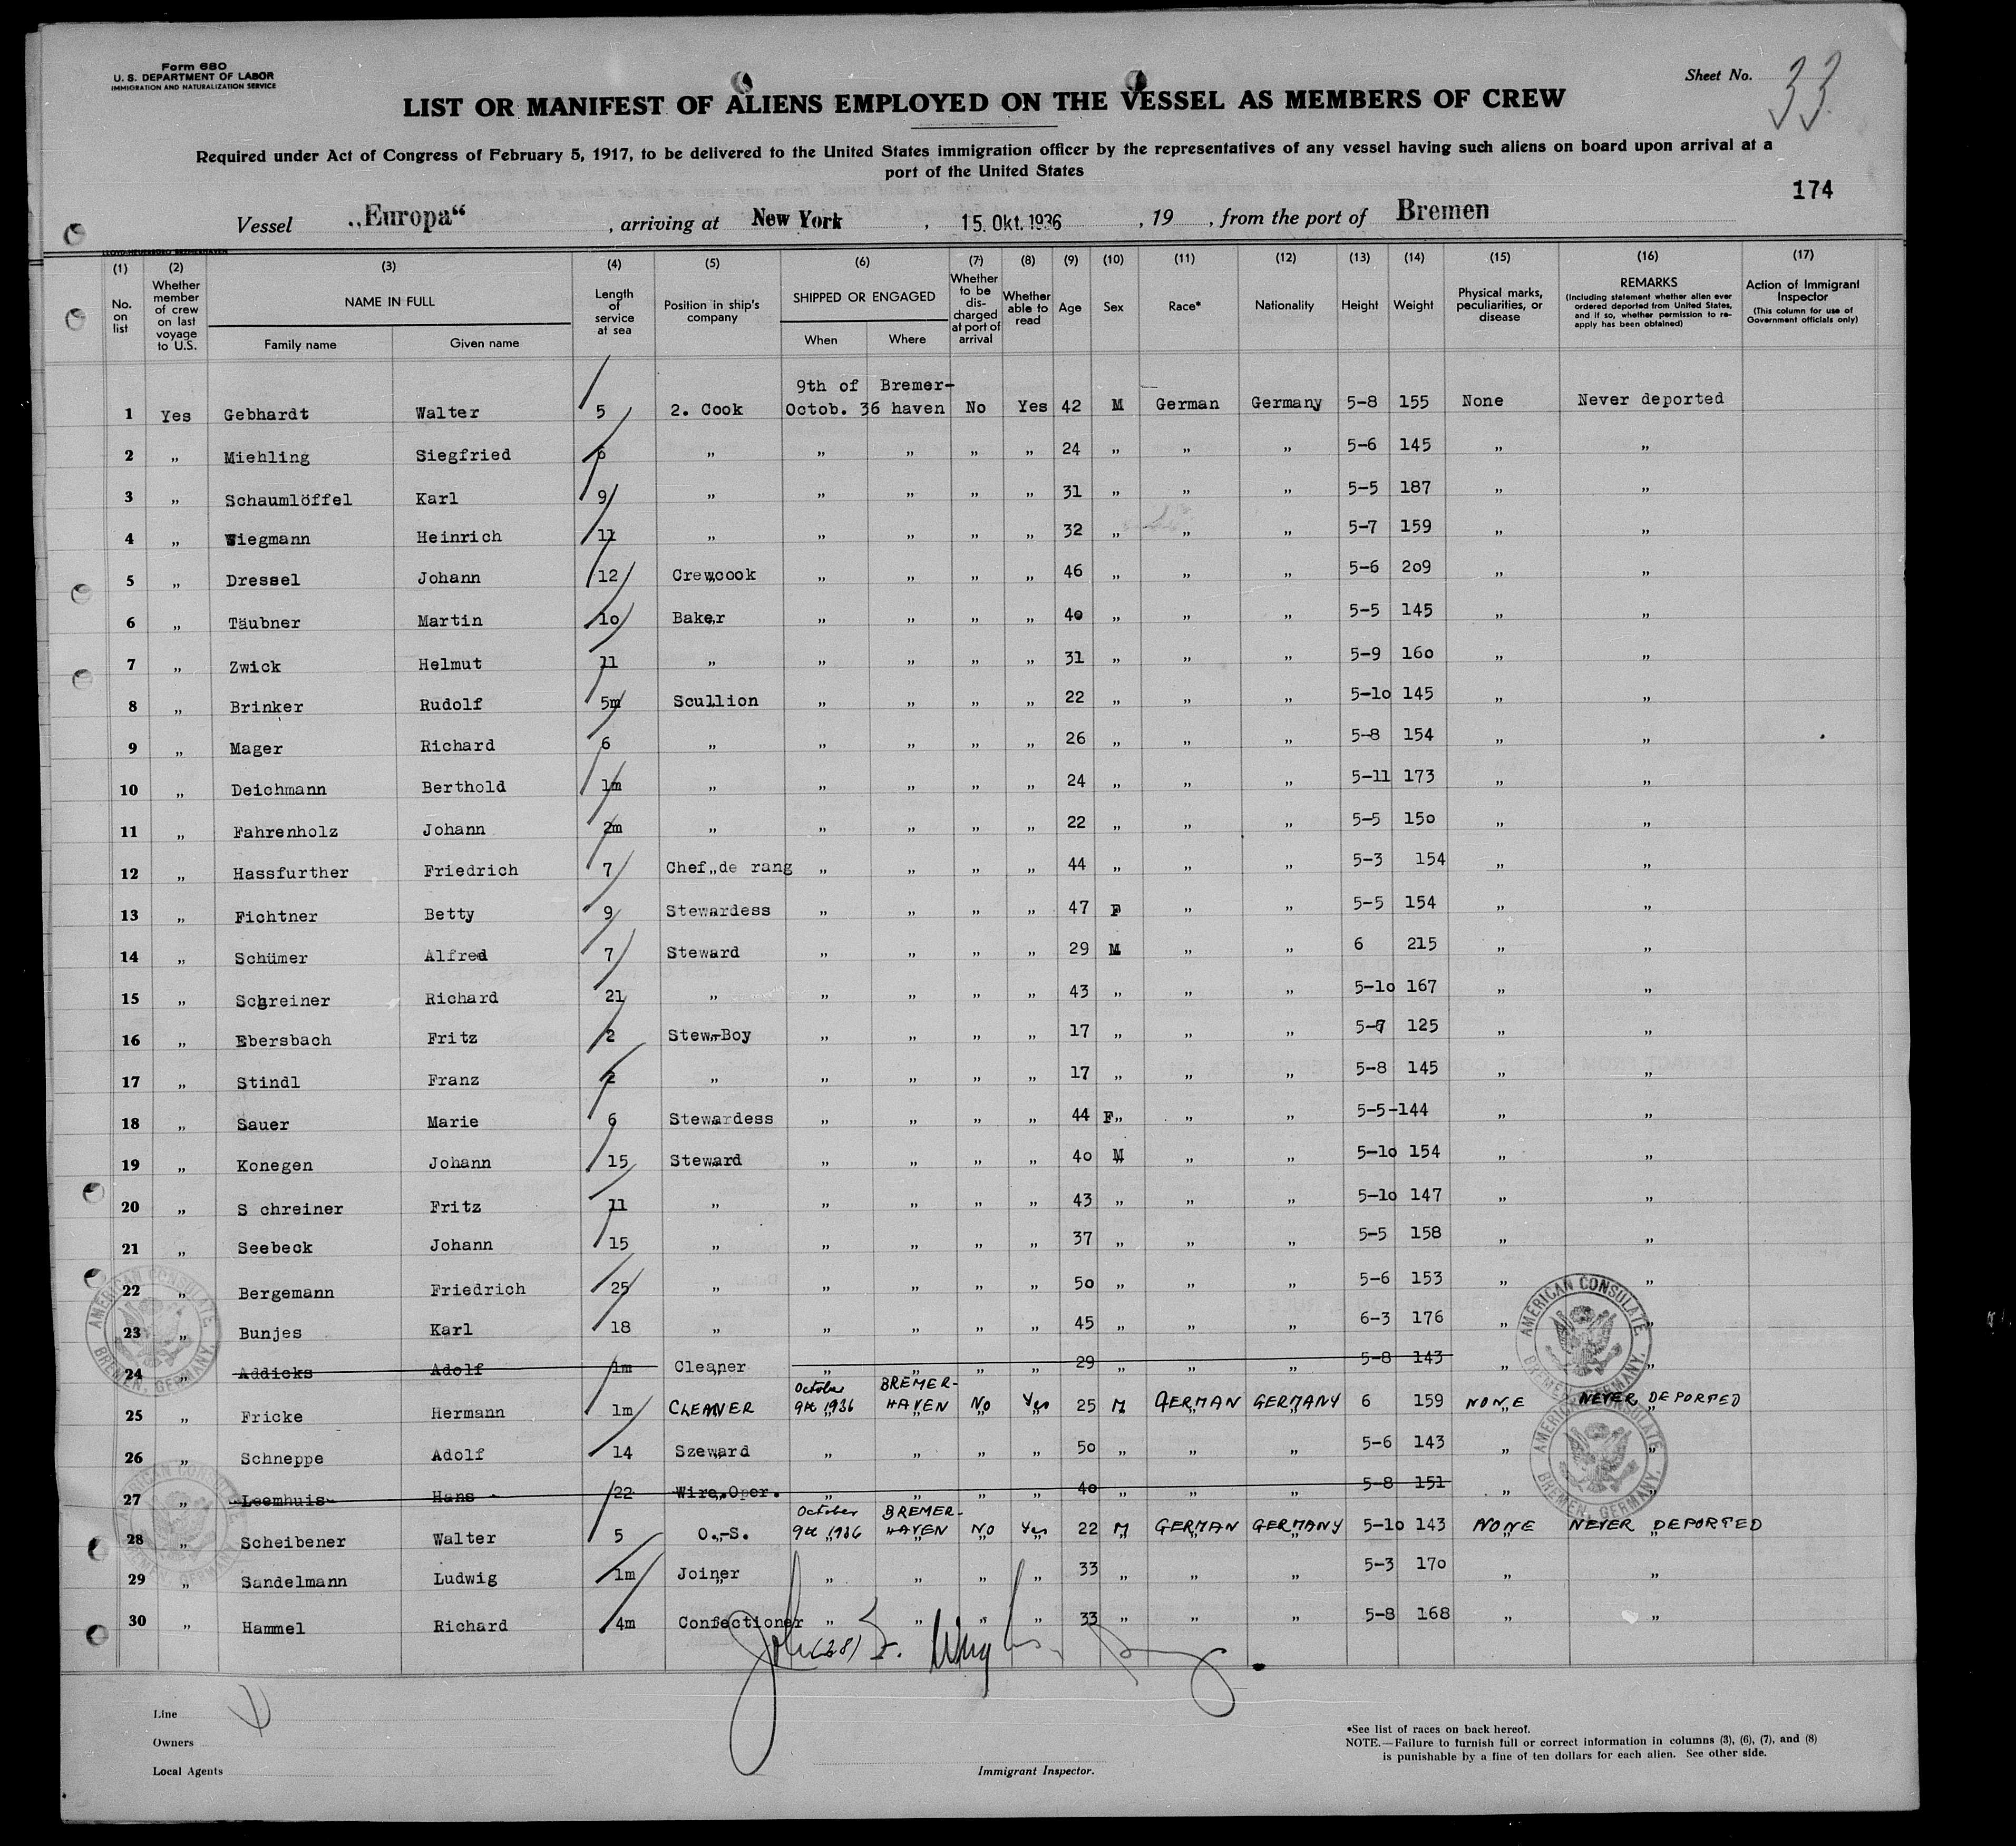 Form 680
U. S. DEPARTMENT OF LABOR
IMMIGRATION AND NATURALIZATION SERVICE
Sheet No. 33
LIST OR MANIFEST OF ALIENS EMPLOYED ON THE VESSEL AS MEMBERS OF CREW
Required under Act of Congress of February 5, 1917, to be delivered to the United States immigration officer by the representatives of any vessel having such aliens on board upon arrival at a
port of the United States
174
Vessel „Europa“ , arriving at New York , 15. Okt. 1936 , 19 , from the port of Bremen
(1) (2) (3) (4) (5) (6) (7) (8) (9) (10) (11) (12) (13) (14) (15) (16) (17)
No. on list
Whether member of crew on last voyage to U.S.
NAME IN FULL
Family name Given name
Length of service at sea
Position in ship's company
SHIPPED OR ENGAGED
When Where
Whether to be discharged at port of arrival
Whether able to read
Age Sex Race* Nationality Height Weight
Physical marks, peculiarities, or disease
REMARKS
(Including statement whether alien ever ordered deported from United States, and if so, whether permission to reapply has been obtained)
Action of Immigrant Inspector
(This column for use of Government officials only)
9th of Bremer-
1 Yes Gebhardt Walter 5 2. Cook Octob. 36 haven No Yes 42 M German Germany 5-8 155 None Never deported
2 „ Miehling Siegfried 6 „ „ „ „ „ 24 „ „ „ 5-6 145 „ „
3 „ Schaumlöffel Karl 9 „ „ „ „ „ 31 „ „ „ 5-5 187 „ „
4 „ Wiegmann Heinrich 11 „ „ „ „ „ 32 „ „ „ 5-7 159 „ „
5 „ Dressel Johann 12 Crew,cook „ „ „ „ 46 „ „ „ 5-6 2o9 „ „
6 „ Täubner Martin 1o Baker „ „ „ „ 4o „ „ „ 5-5 145 „ „
7 „ Zwick Helmut 11 „ „ „ „ „ 31 „ „ „ 5-9 16o „ „
8 „ Brinker Rudolf 5m Scullion „ „ „ „ 22 „ „ „ 5-1o 145 „ „
9 „ Mager Richard 6 „ „ „ „ „ 26 „ „ „ 5-8 154 „ „
10 „ Deichmann Berthold 1m „ „ „ „ „ 24 „ „ „ 5-11 173 „ „
11 „ Fahrenholz Johann 2m „ „ „ „ „ 22 „ „ „ 5-5 15o „ „
12 „ Hassfurther Friedrich 7 Chef„de rang „ „ „ „ 44 „ „ „ 5-3 154 „ „
13 „ Fichtner Betty 9 Stewardess „ „ „ „ 47 F „ „ 5-5 154 „ „
14 „ Schümer Alfred 7 Steward „ „ „ „ 29 M „ „ 6 215 „ „
15 „ Schreiner Richard 21 „ „ „ „ „ 43 „ „ „ 5-1o 167 „ „
16 „ Ebersbach Fritz 2 Stew-Boy „ „ „ „ 17 „ „ „ 5-7 125 „ „
17 „ Stindl Franz 2 „ „ „ „ „ 17 „ „ „ 5-8 145 „ „
18 „ Sauer Marie 6 Stewardess „ „ „ „ 44 F„ „ „ 5-5-144 „ „
19 „ Konegen Johann 15 Steward „ „ „ „ 4o M „ „ 5-1o 154 „ „
20 „ S chreiner Fritz 11 „ „ „ „ „ 43 „ „ „ 5-1o 147 „ „
21 „ Seebeck Johann 15 „ „ „ „ „ 37 „ „ „ 5-5 158 „ „
22 „ Bergemann Friedrich 25 „ „ „ „ „ 5o „ „ „ 5-6 153 „ „
23 „ Bunjes Karl 18 „ „ „ „ „ 45 „ „ „ 6-3 176 „ „
24 „ Addicks Adolf 1m Cleaner „ „ „ „ 29 „ „ „ 5-8 143 „ „
October BREMER-
25 „ Fricke Hermann 1m CLEANER 9th 1936 HAVEN NO Yes 25 M GERMAN GERMANY 6 159 NONE NEVER DEPORTED
26 „ Schneppe Adolf 14 Szeward „ „ „ „ 5o „ „ „ 5-6 143 „ „
27 „ Leemhuis Hans 22 Wire.Oper. „ „ „ „ 4o „ „ „ 5-8 151 „ „
October BREMER-
28 „ Scheibener Walter 5 O.-S. 9th 1936 HAVEN NO Yes 22 M GERMAN GERMANY 5-1o 143 NONE NEVER DEPORTED
29 „ Sandelmann Ludwig 1m Joiner „ „ „ „ 33 „ „ „ 5-3 17o „ „
30 „ Hammel Richard 4m Confectioner „ „ „ „ 33 „ „ „ 5-8 168 „ „
AMERICAN CONSULATE BREMEN, GERMANY.
AMERICAN CONSULATE BREMEN, GERMANY.
AMERICAN CONSULATE BREMEN, GERMANY.
AMERICAN CONSULATE BREMEN, GERMANY.
(28)
Line
Owners
Local Agents
Immigrant Inspector.
*See list of races on back hereof.
NOTE.—Failure to furnish full or correct information in columns (3), (6), (7), and (8)
is punishable by a fine of ten dollars for each alien. See other side.